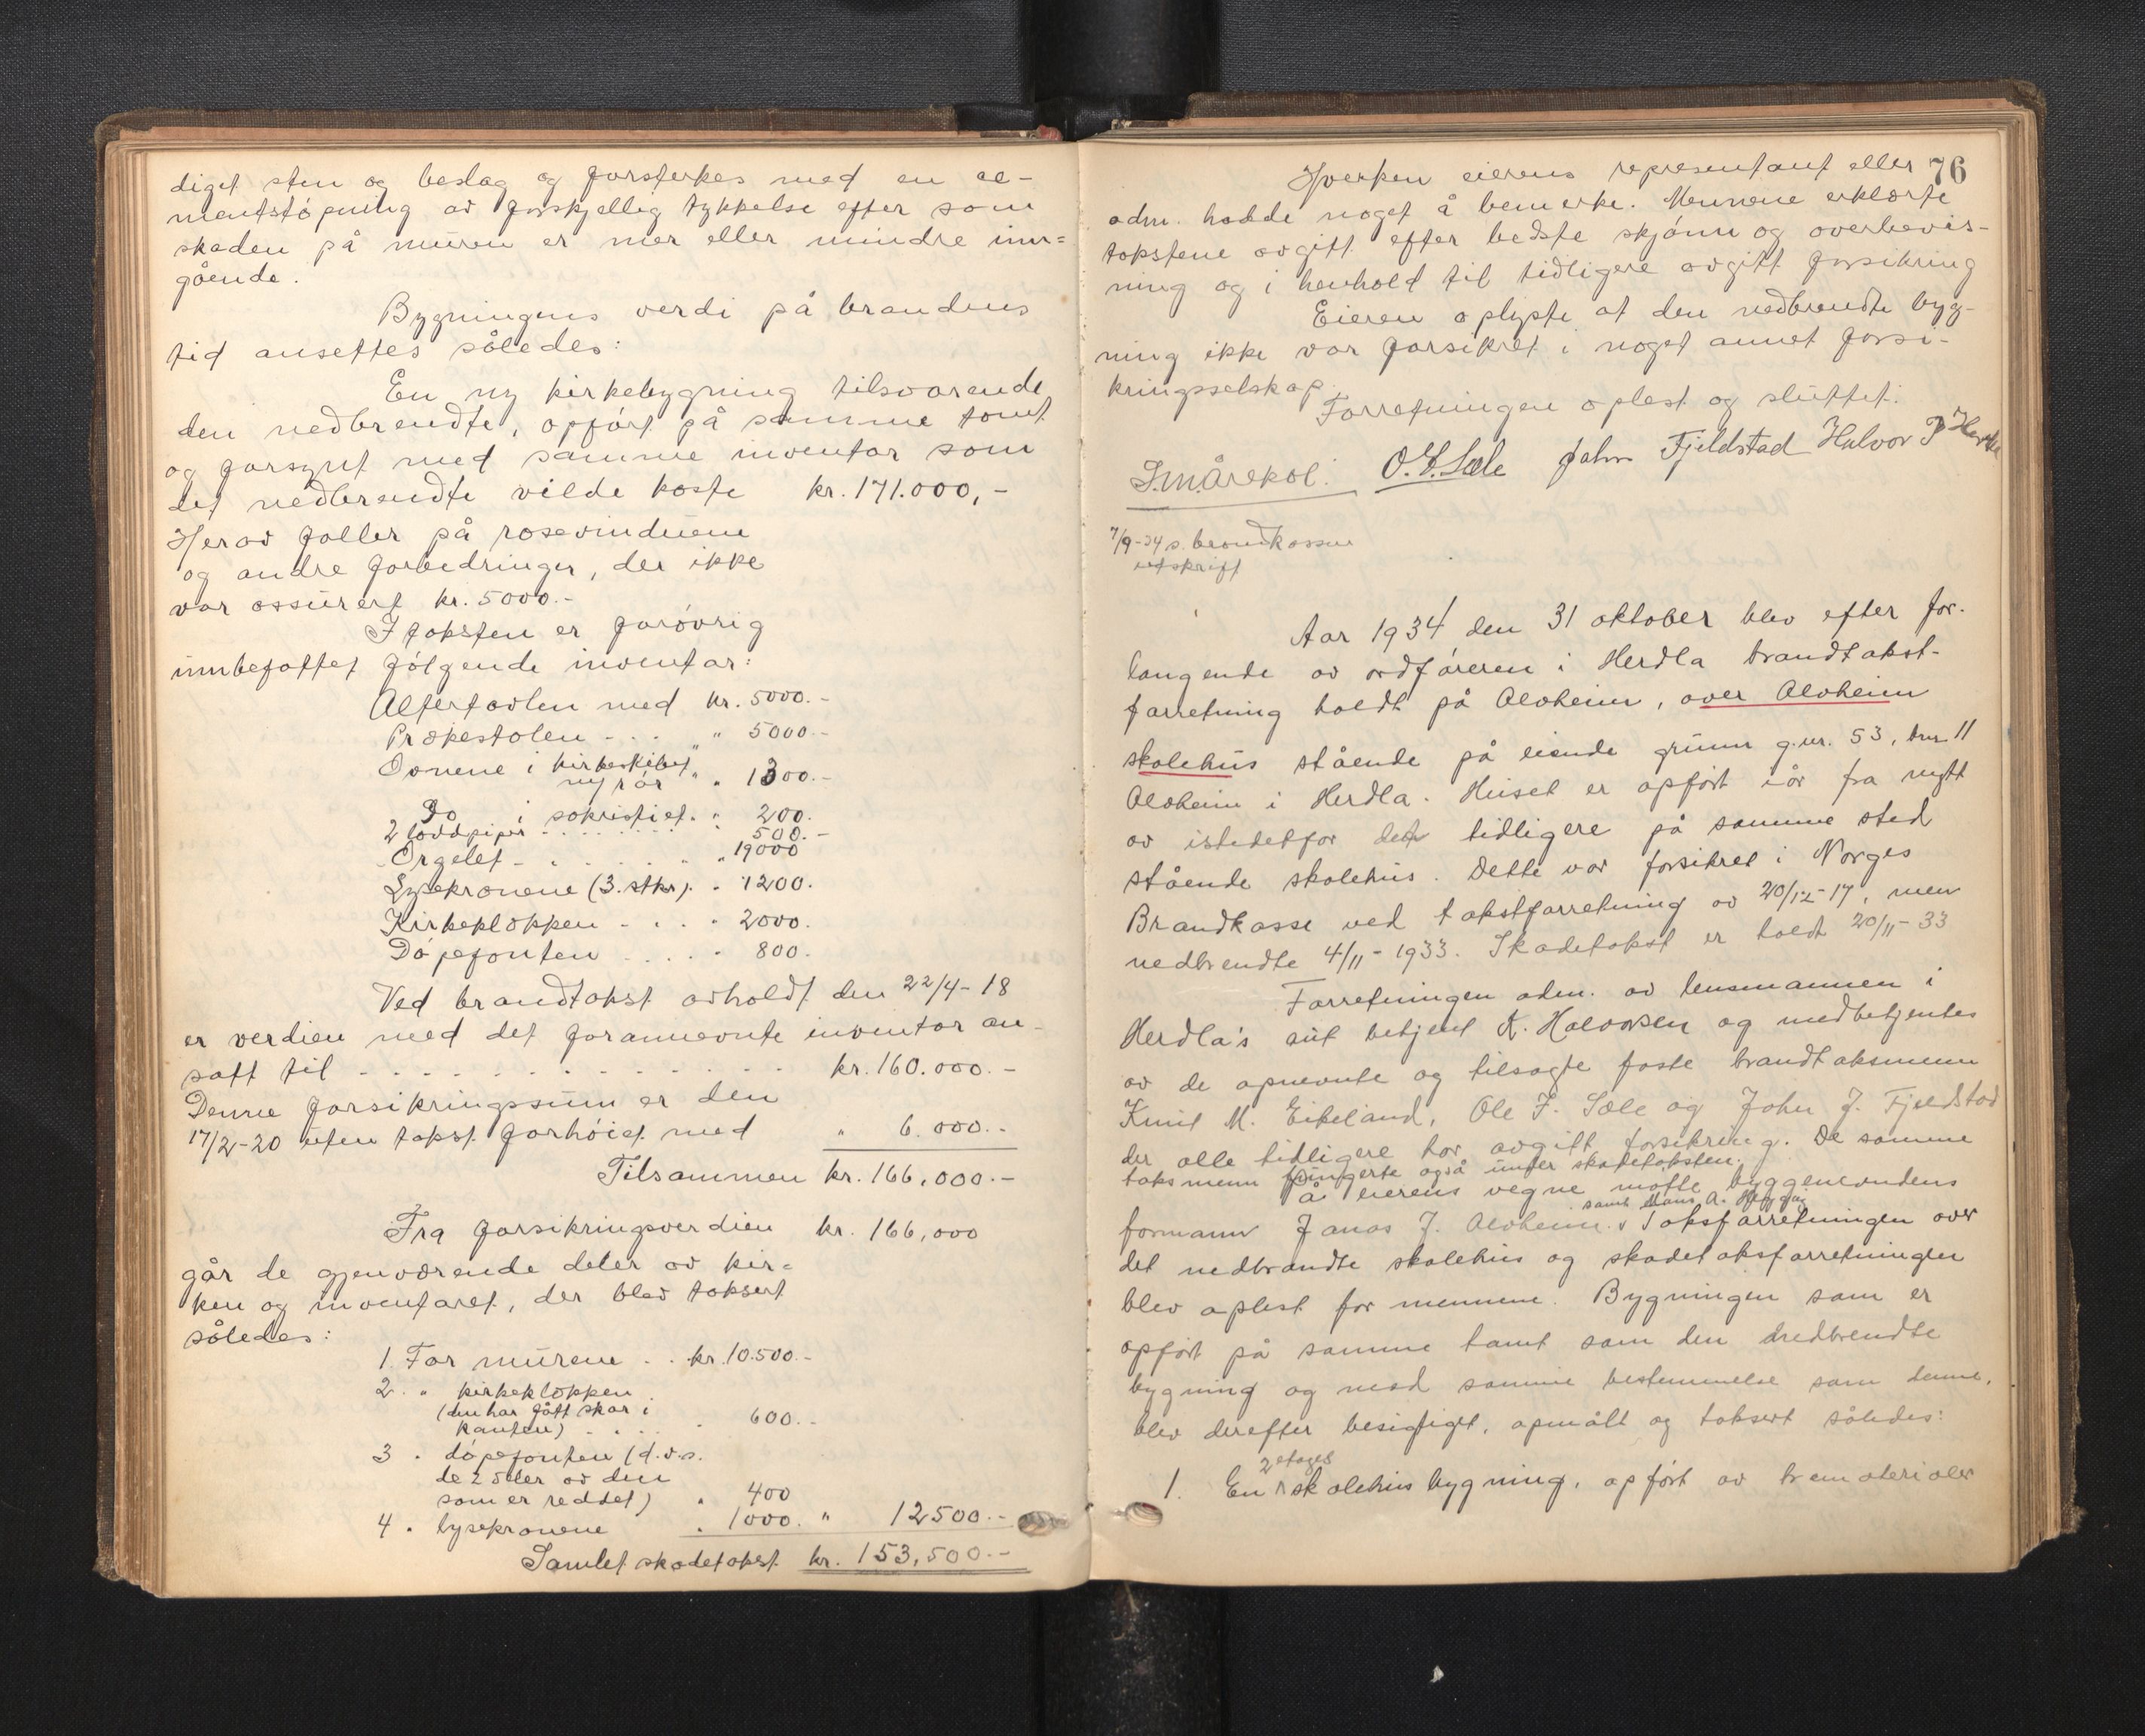 diget sten og beslag og forsterkes med en ce-
mentstøpning av forskjellig tykkelse efter som
skaden på muren er mer eller mindre inn-
gående.
Bygningens verdi på brandens
tid ansettes således:
En ny kirkebygning tilsvarende
den nedbrendte, opført på samme tomt
og forsynt med samme inventar som
det nedbrendte vilde koste kr. 171.000,-
Herav faller på rosevinduene
og andre forbedringer, der ikke
var assurert kr. 5000.-
I taksten er forøvrig
innbefattet følgende inventar:
Altertavlen med kr. 5000.-
Prækestolen - . . " 5000.-
Ovnene i kirkeskibet
m/ rør " " 1300.-
Do i sakristiet. " 200.
2 loddpiper . . . . . . 500.-
Orgelet - . . . . " " 19000
Lysekronene (3. stkr). " 1200.
Kirkeklokken - . . " 2000.
Døpefonten . . . . " 800.
Ved brandtakst avholdt den 22/4-18
er verdien med det forannevnte inventar an-
satt til - - - - - - - - - kr. 160.000.-
Denne forsikringssum er den
17/2-20 uten takst forhøiet med " 6.000.-
Tilsammen kr. 166,000.-
Fra forsikringsverdien kr. 166,000
går de gjenværende deler av kir-
ken og inventaret, der blev taksert
således:
1. For murene . . kr. 10.500.-
2. " kirkeklokken
(den har fått skar i
kanten) - . . . " 600.-
3 " døpefonten (d.v.s.
de 2 deler av den
som er reddet) " 400
4 " lysekronene " 1000. " 12500.-
Samlet skadetakst kr. 153,500.-
76
Hverken eierens representant eller
adm. hadde noget å bemerke. Mennene erklærte
takstene avgitt efter bedste skjønn og overbevis-
ning og i henhold til tidligere avgitt forsikring
Eieren oplyste at den nedbrendte byg-
ning ikke var forsikret i noget annet forsi-
kringsselskap.
Forretningen oplest og sluttet.
O. E. Sæle John Fjeldstad Halvor P
7/9-34 s. brandkassen
utskrift
Aar 1934 den 31 oktober blev efter for-
langende av ordføreren i Herdla brandtakst-
forretning holdt på Alvheim, over Alvheim
skolehus stående på eiende grunn g.nr. 53, bnr 11
Alvheim i Herdla. Huset er opført iår fra nytt
av istedetfor det tidligere på samme sted
stående skolehus. Dette var forsikret i Norges
Brandkasse ved takstforretning av 20/12-17, men
nedbrendte 4/11-1933. Skadetakst er holdt 20/11-33
Forretningen adm. av lensmannen i
Herdla's aut betjent A. Halvorsen og medbetjentes
av de opnevnte og tilsagte faste brandtaksmenn
Knut M. Eikeland, Ole F. Sæle og John J. Fjeldstad
der alle tidligere har avgitt forsikring. De samme
taksmenn fungerte også under skadetaksten.
På eierens vegne møtte byggenevndens
samt Hans A.
formann Jonas J. Alvheim. Taksforretningen over
det nedbrandte skolehus og skadetaksforretningen
blev oplest for mennene. Bygningen som er
opført på samme tomt som den nedbrendte
bygning og med samme bestemmelse som denne,
blev derefter besigtiget, opmålt og taksert således:
2 etages
1. En skolehusbygning, opført av trematerialer